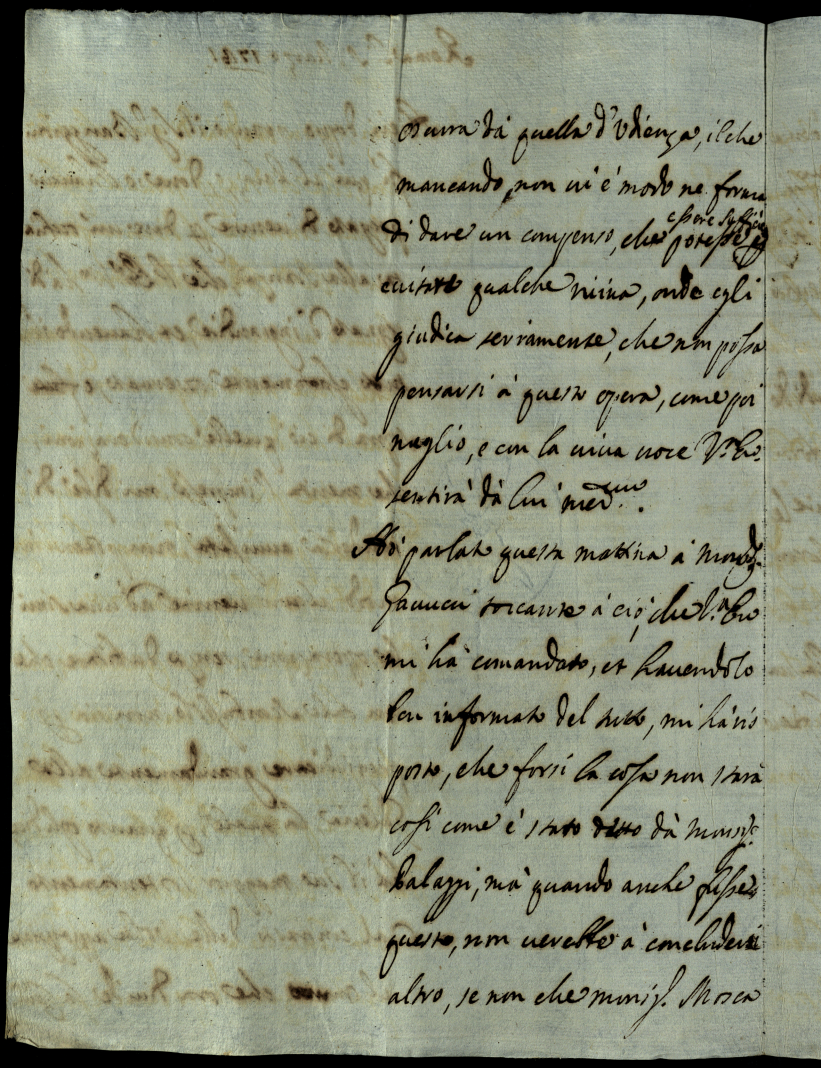 oscura dà quella d'Udienza, il che
mancando, non vi é modo ne forma
di dare un compenso, che potesse
essere
evitare qualche ruina, onde egli
giudica seriamente, che non possa
pensarsi à questa opera, come poi
meglio, e con la viva voce V.ra Em.
sentirà dà lui med.mo.
Hò parlato questa mattina à Monsig.
toccante à ciò, che V.ra Em
mi hà comandato, et havendolo
ben informato del tutto, mi hà ris
posto, che forsi la cosa non starà
cosi come é stato detto dà Monsig.r
Palazzi, mà quando anche fusse
questo, non verebbe à concludersi
altro, se non che monsig.r Mosca